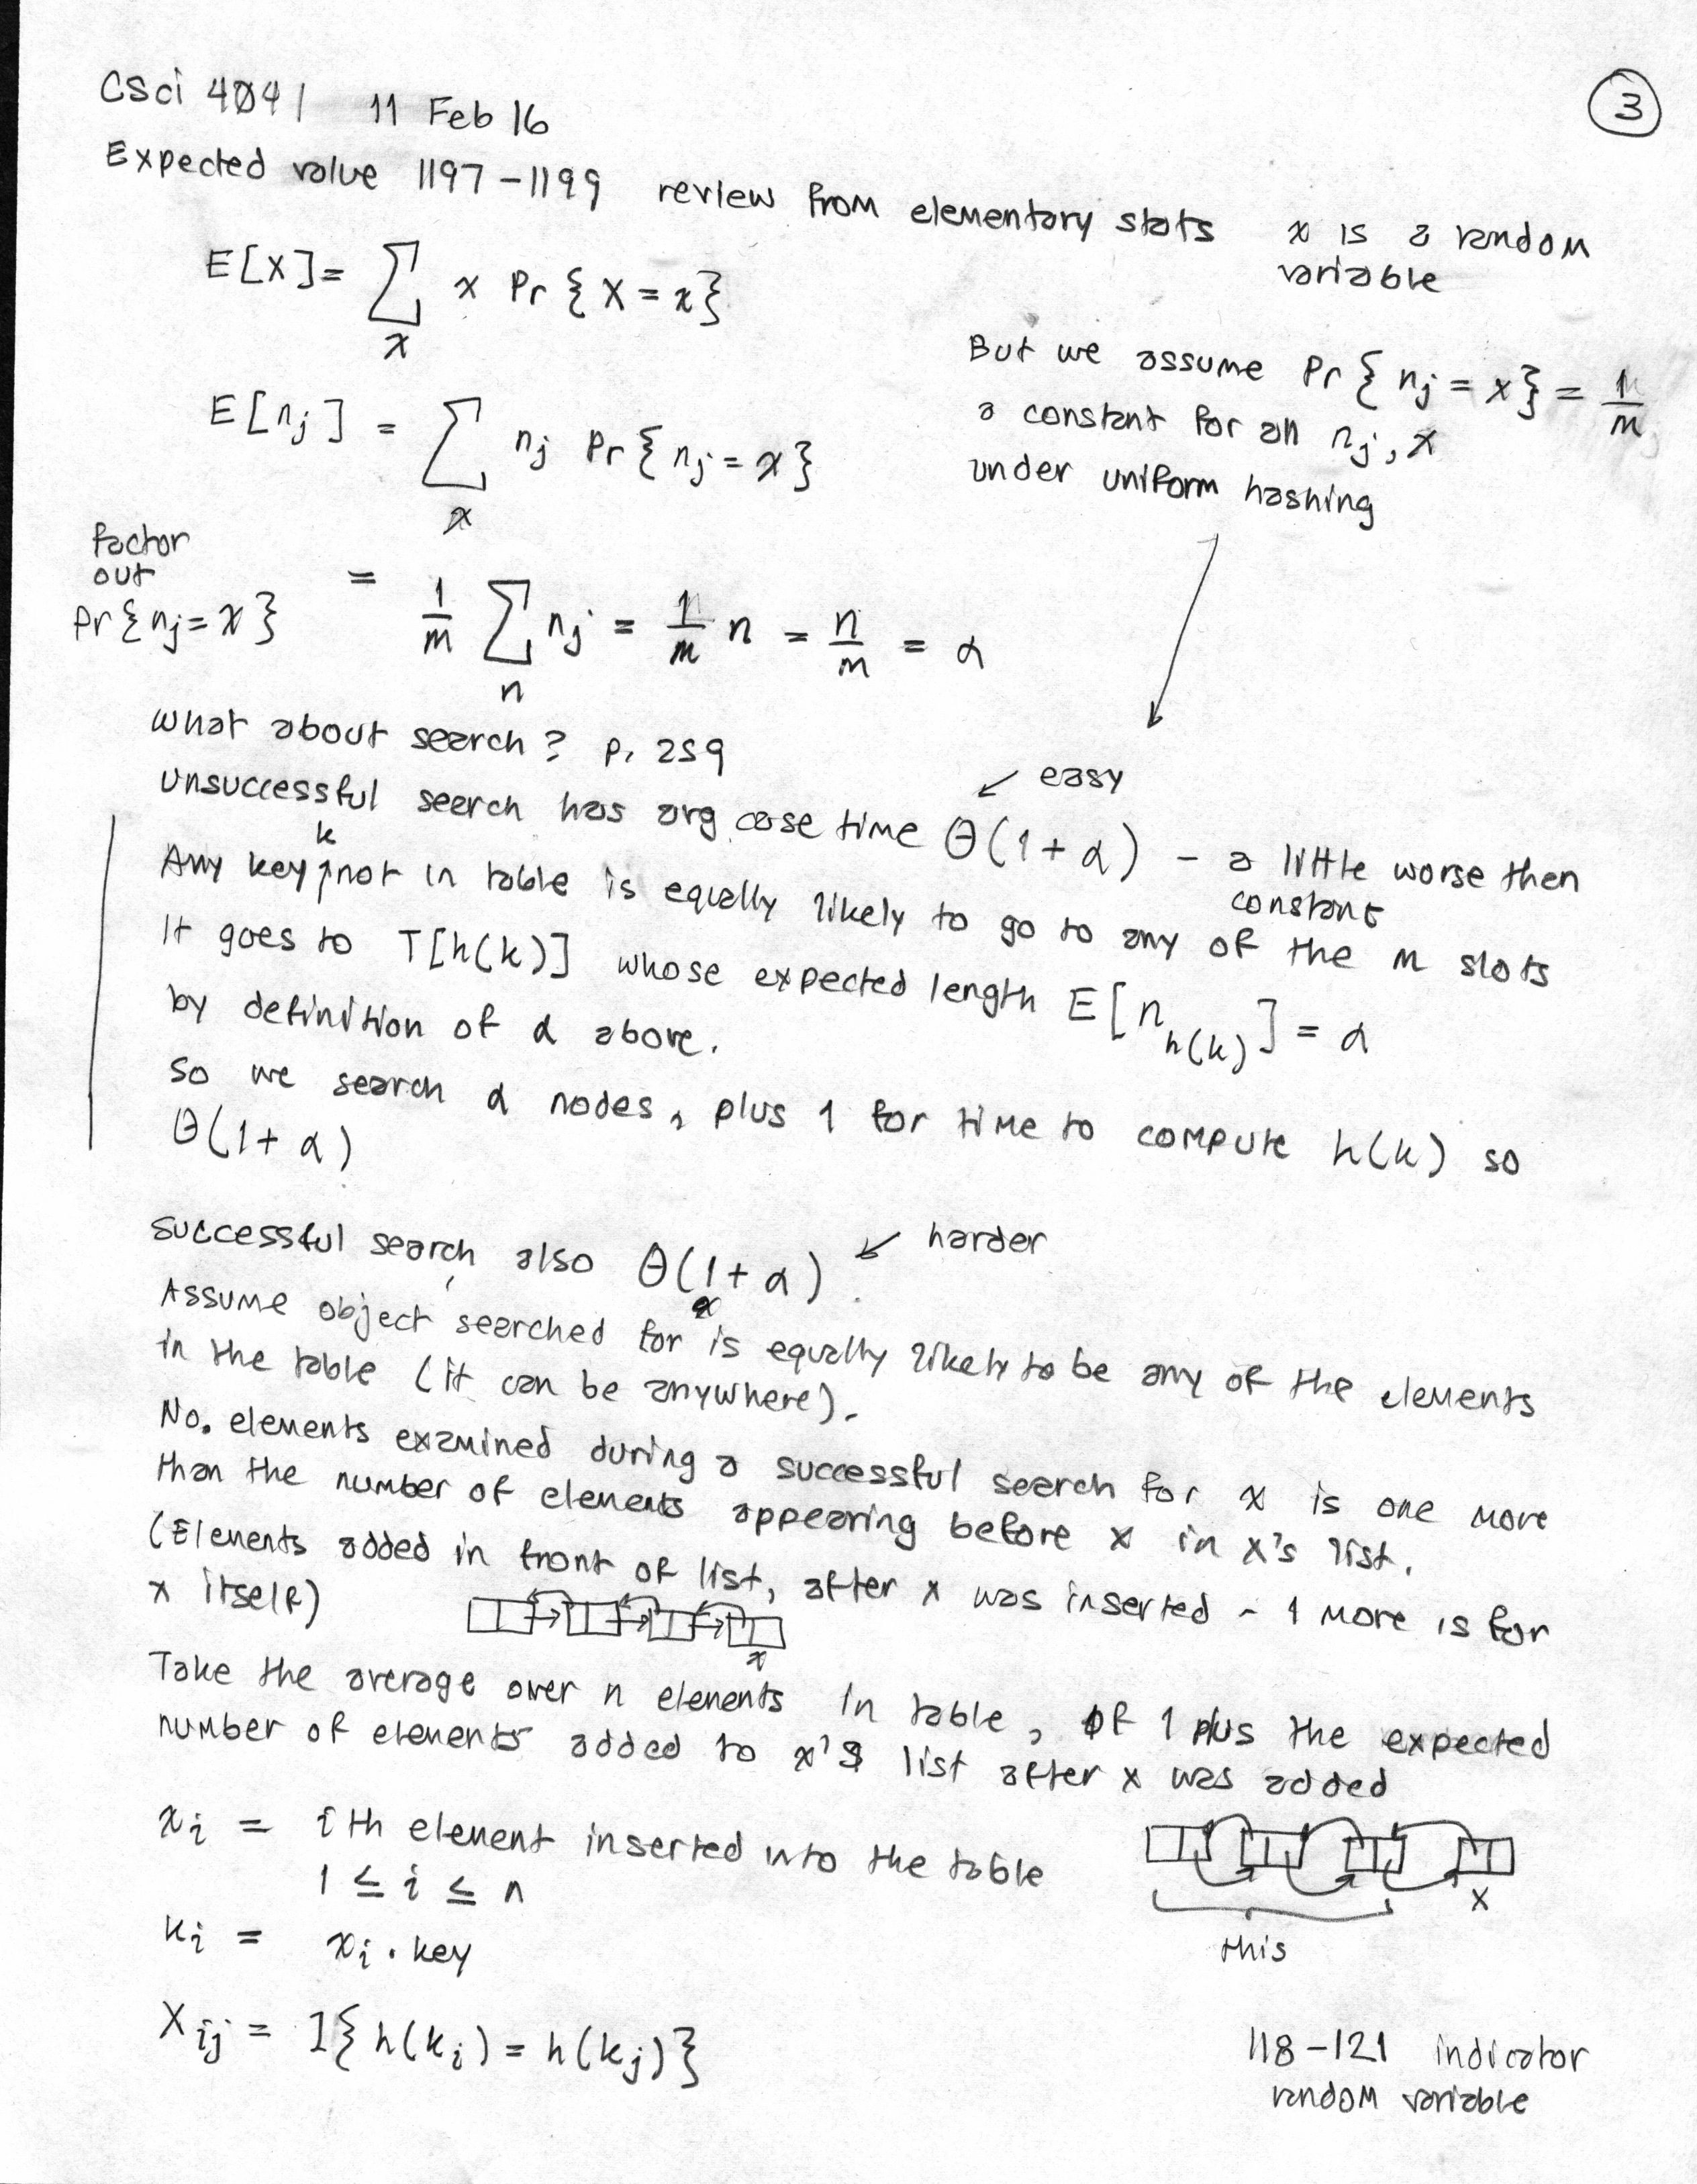 CSci 4041 11 Feb 16
3
Expected value 1197-1199 review from elementary stats
x is a random
variable
E[X] = ∑ x Pr{X = x}
x
But we assume Pr{nj = x} = 1/m
a constant for all nj, x
under uniform hashing
E[nj] = ∑ nj Pr{nj = x}
x
factor
out
Pr{nj = x}
= 1/m ∑ nj = 1/m n = n/m = α
n
What about search? p. 259
Unsuccessful search has avg case time Θ(1+α) - a little worse then
constant
← easy
Any key k not in table is equally likely to go to any of the m slots
It goes to T[h(k)] whose expected length E[n h(k)] = α
by definition of α above.
So we search α nodes, plus 1 for time to compute h(k) so
Θ(1+α)
Successful search also Θ(1+α). ← harder
Assume object searched for x is equally likely to be any of the elements
in the table (it can be anywhere).
No. elements examined during a successful search for x is one more
than the number of elements appearing before x in x's list.
(Elements added in front of list, after x was inserted - 1 more is for
x itself)
x
Take the average over n elements in table, of 1 plus the expected
number of elements added to x's list after x was added
xi = ith element inserted into the table
1 ≤ i ≤ n
x
this
ki = xi.key
Xij = I{h(ki) = h(kj)}
118-121 indicator
random variable